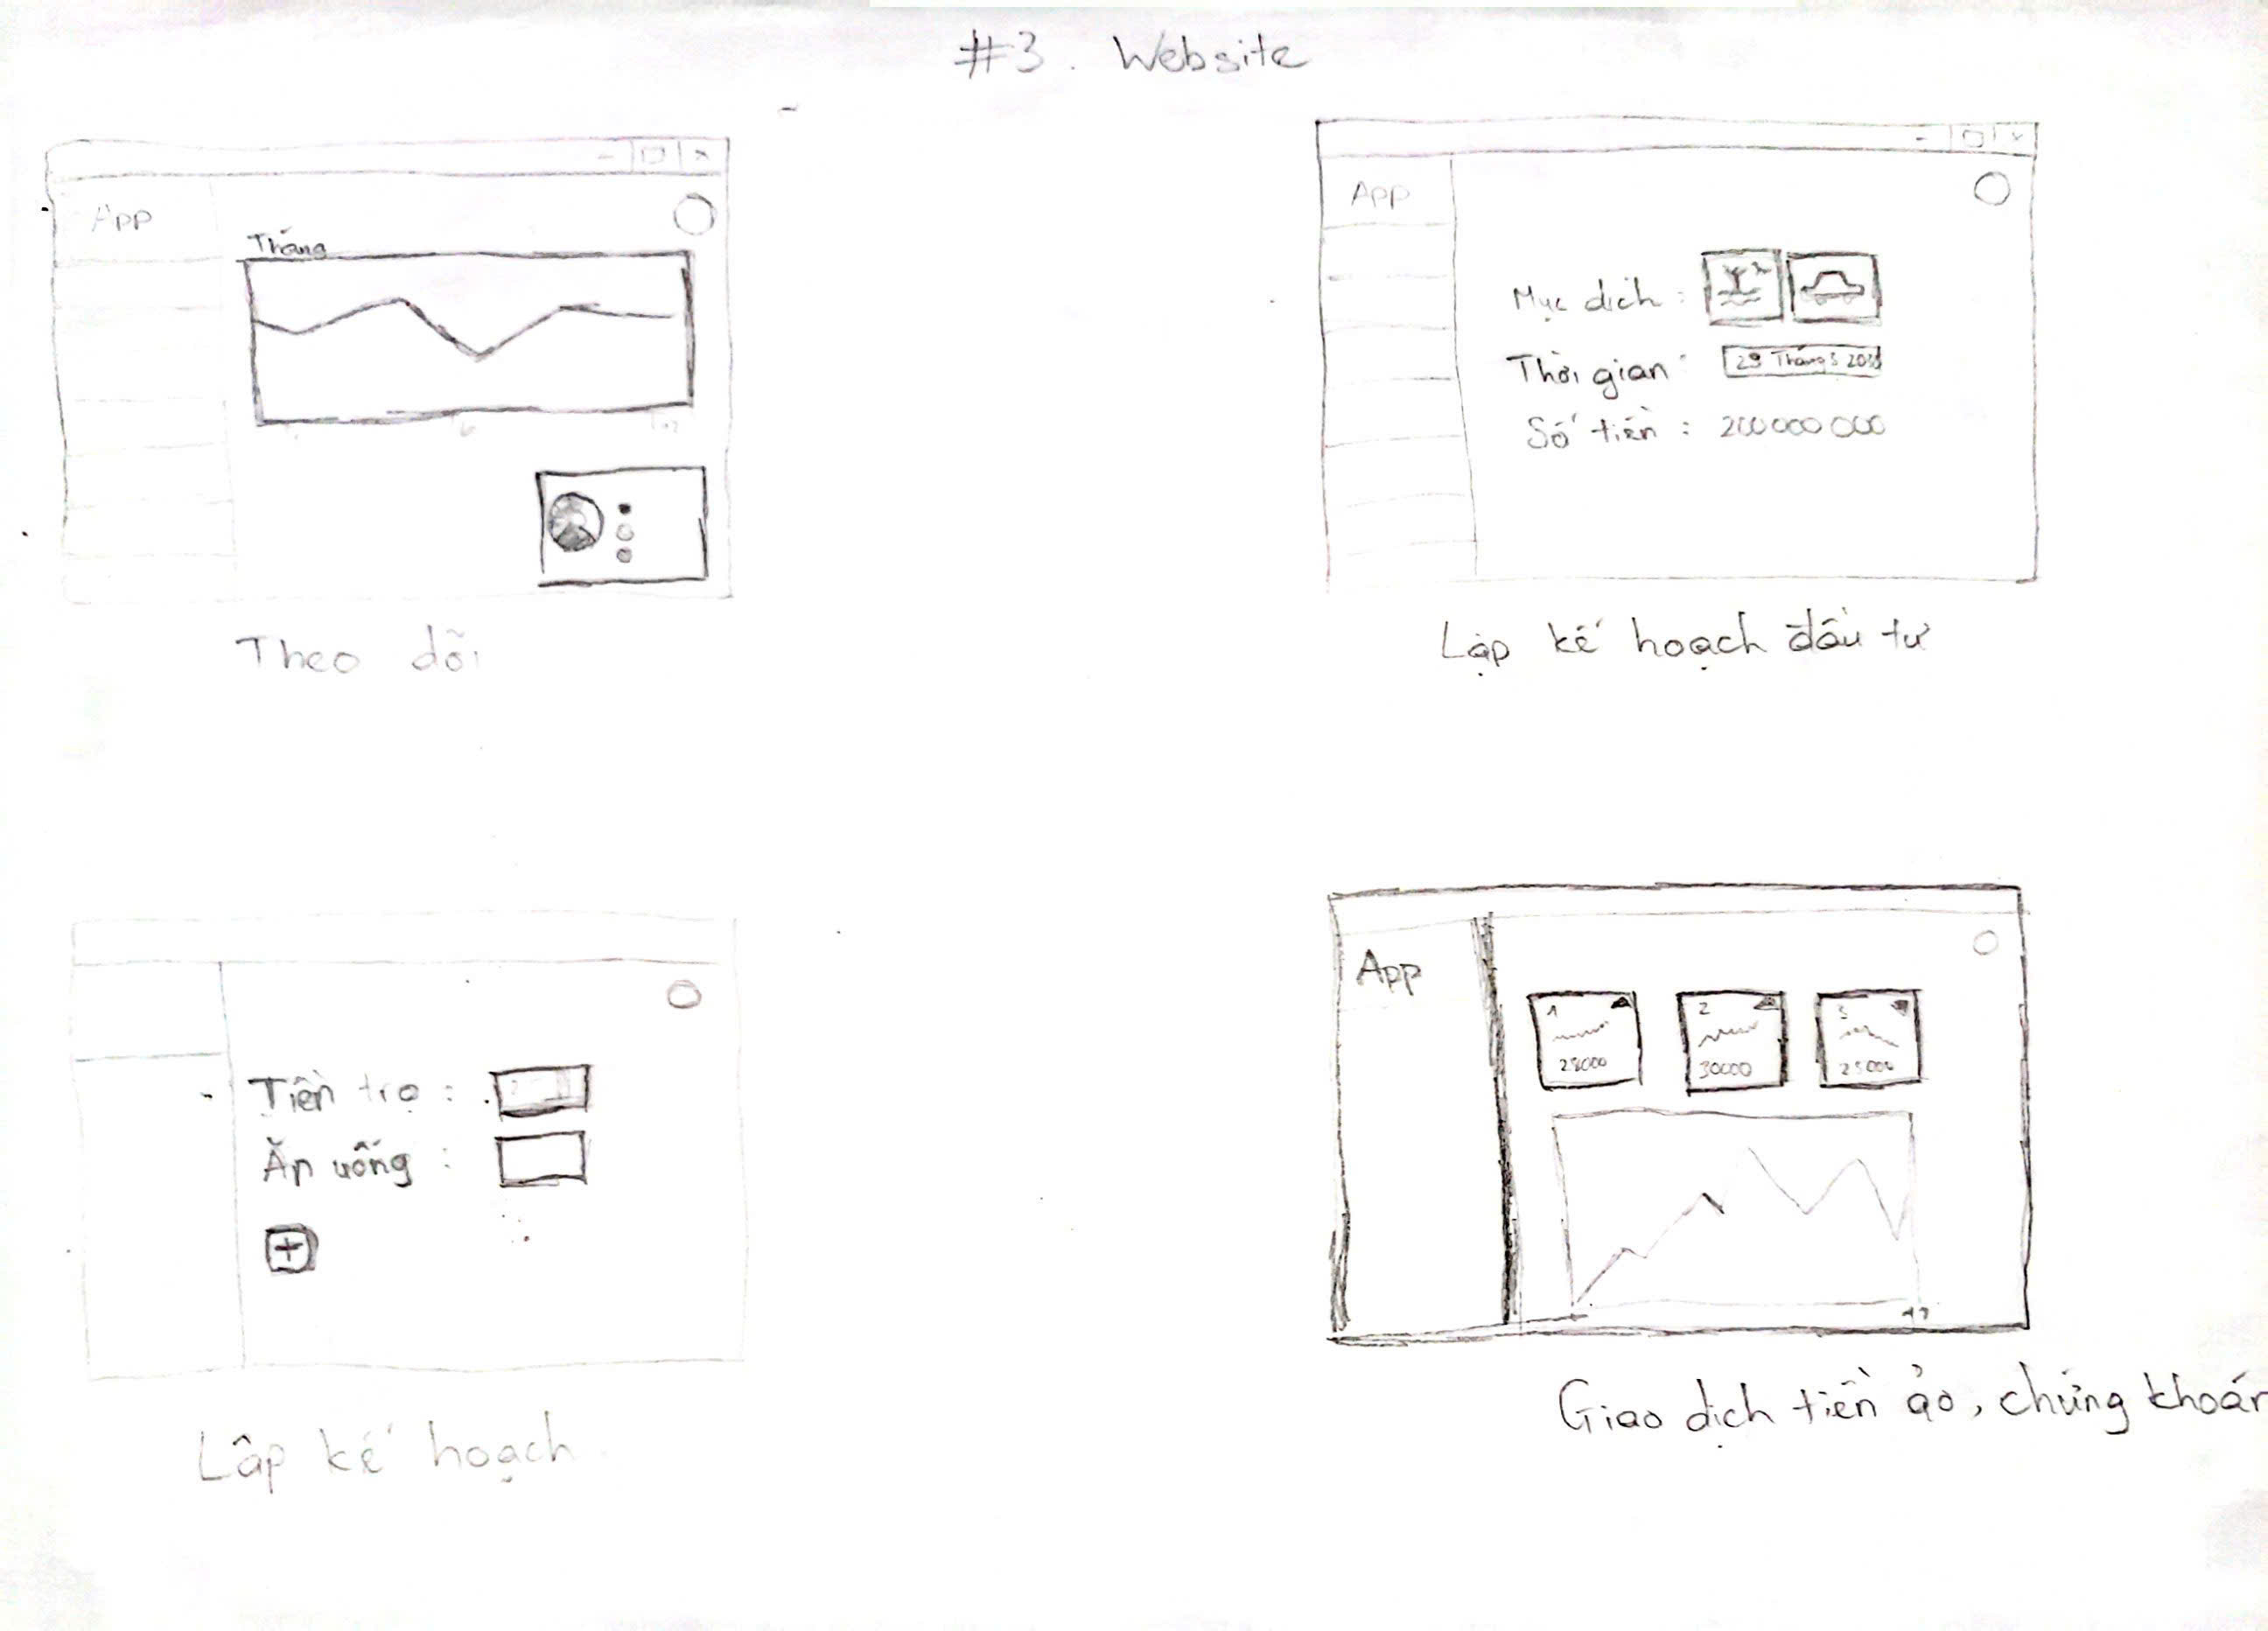 #3. Website
App
Tháng
Theo dõi
App
Mục dích :
Thời gian :
29 Tháng 5
Số tiền : 200000 000
Lập kế hoạch đầu tư
Tiền trọ :
Ăn uống :
+
Lập kế hoạch
App
1
2
3
28000
30000
25000
Giao dịch tiền ảo, chứng khoán